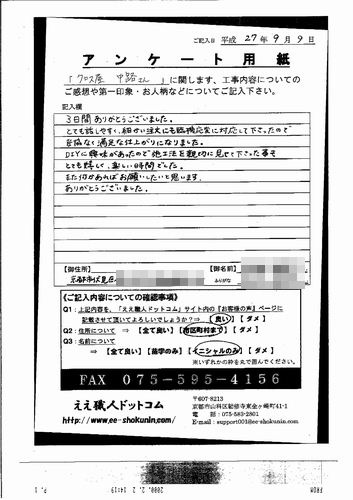 ご記入日 平成 27年 9月 9日
アンケート用紙
「クロス屋 中路さん」に関します、工事内容についての
ご感想や第一印象・お人柄などについてご記入下さい。
記入欄
3日間ありがとうございました。
とても話しやすく、細かい注文にも臨機応変に対応して下さったので
妥協なく満足な仕上がりになりました。
DIYに興味があったので施工法を親切に見せて下さった事も
とても嬉しく、楽しい時間でした。
また何かあればお願いしたいと思います。
ありがとうございました。
【御住所】
京都市伏見区
【御名前】
ふりがな
《ご記入内容についての確認事項》
Q1：上記内容を、「ええ職人ドットコム」サイト内の『お客様の声』ページに
記載させて頂いてよろしいでしょうか？⇒【良い】【ダメ】
Q2：住所について ⇒ 【全て良い】【市区町村まで】【ダメ】
Q3：名前について
⇒ 【全て良い】【苗字のみ】【イニシャルのみ】【ダメ】
※いずれかの枠を丸で囲んでください。
FAX 075-595-4156
ええ職人ドットコム
http://www.ee-shokunin.com/
〒607-8213
京都市山科区勧修寺東金ヶ崎町41-1
電話：075-583-2801
E-mail：support001@ee-shokunin.com
FROM
2000. 2. 2 14:19
P. 1